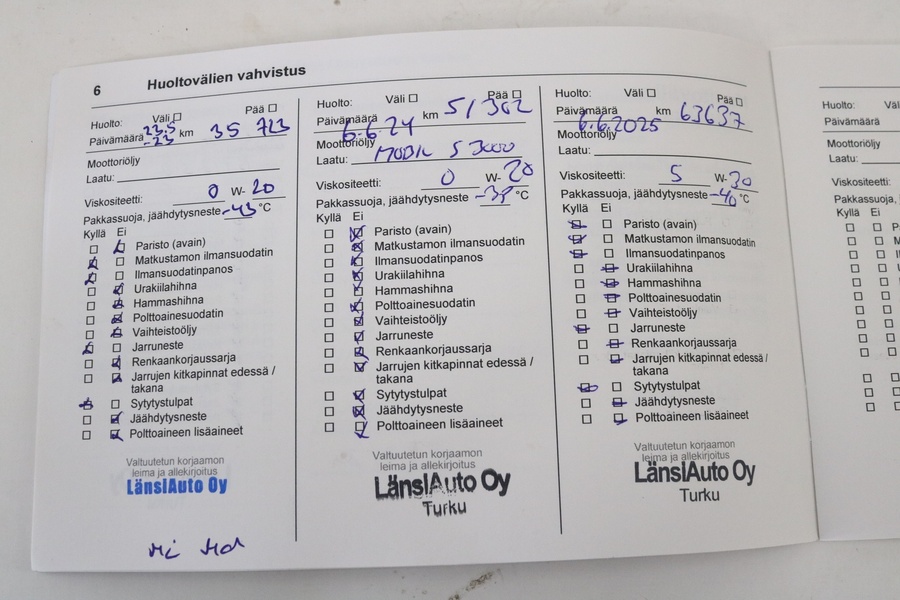 6 Huoltovälien vahvistus
Huolto: Väli Pää
Päivämäärä 23.5 -23 km 35 723
Moottoriöljy
Laatu:
Viskositeetti: 0 W- 20
Pakkassuoja, jäähdytysneste -43 °C
Kyllä Ei
Paristo (avain)
Matkustamon ilmansuodatin
Ilmansuodatinpanos
Urakiilahihna
Hammashihna
Polttoainesuodatin
Vaihteistoöljy
Jarruneste
Renkaankorjaussarja
Jarrujen kitkapinnat edessä /
takana
Sytytystulpat
Jäähdytysneste
Polttoaineen lisäaineet
Valtuutetun korjaamon
leima ja allekirjoitus
LänsiAuto Oy
Huolto: Väli Pää
Päivämäärä 6.6.24 km 51302
Moottoriöljy
Laatu: MOBIL S 3000
Viskositeetti: 0 W- 20
Pakkassuoja, jäähdytysneste °C
Kyllä Ei
Paristo (avain)
Matkustamon ilmansuodatin
Ilmansuodatinpanos
Urakiilahihna
Hammashihna
Polttoainesuodatin
Vaihteistoöljy
Jarruneste
Renkaankorjaussarja
Jarrujen kitkapinnat edessä /
takana
Sytytystulpat
Jäähdytysneste
Polttoaineen lisäaineet
Valtuutetun korjaamon
leima ja allekirjoitus
LänsiAuto Oy
Turku
Huolto: Väli Pää
Päivämäärä 6.6.2025 km 63637
Moottoriöljy
Laatu:
Viskositeetti: 5 W- 30
Pakkassuoja, jäähdytysneste -40 °C
Kyllä Ei
Paristo (avain)
Matkustamon ilmansuodatin
Ilmansuodatinpanos
Urakiilahihna
Hammashihna
Polttoainesuodatin
Vaihteistoöljy
Jarruneste
Renkaankorjaussarja
Jarrujen kitkapinnat edessä /
takana
Sytytystulpat
Jäähdytysneste
Polttoaineen lisäaineet
Valtuutetun korjaamon
leima ja allekirjoitus
LänsiAuto Oy
Turku
Huolto: Väl
Päivämäärä
Moottoriöljy
Laatu:
Viskositeetti:
Pakkassuoja,
Kyllä Ei